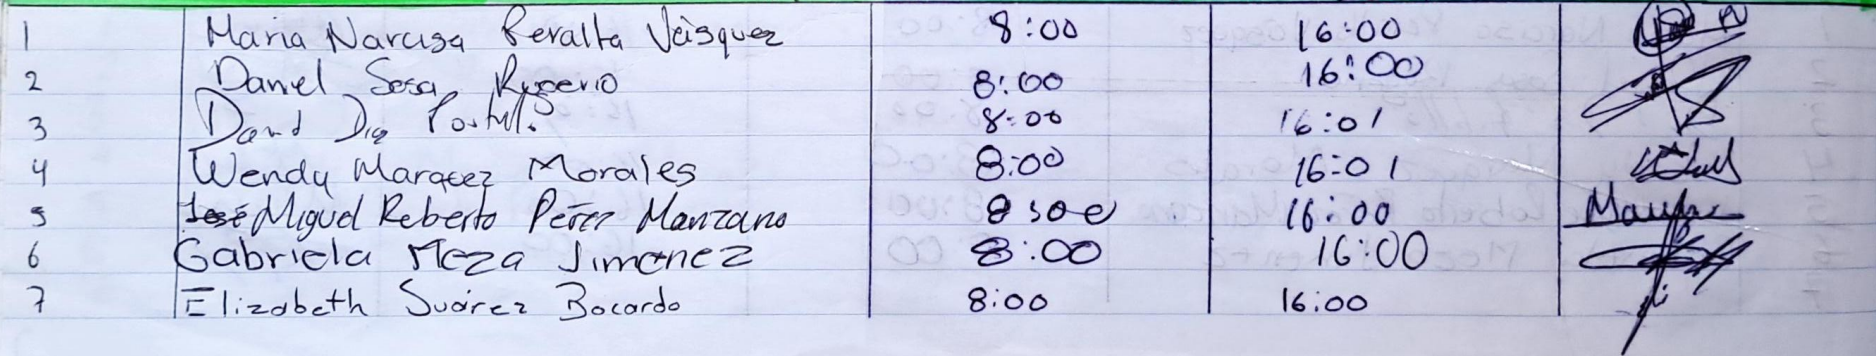 1 Maria Narcisa Peralta Vásquez 8:00 16:00
2 Daniel Sosa Rugerio 8:00 16:00
3 David 8:00 16:01
4 Wendy Marquez Morales 8:00 16:01
5 José Miguel Roberto Pérez Manzano 8:00 16:00
6 Gabriela Meza Jimenez 8:00 16:00
7 Elizabeth Suárez Bocardo 8:00 16:00